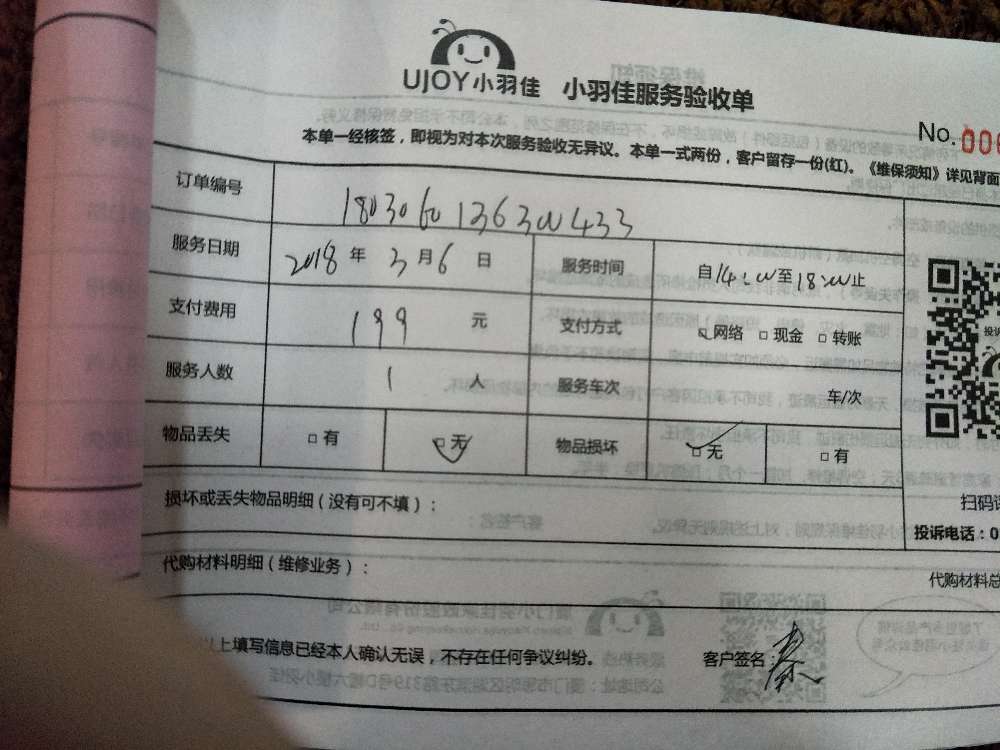 UJOY小羽佳 小羽佳服务验收单
No.000
本单一经核签，即视为对本次服务验收无异议。本单一式两份，客户留存一份(红)。《维保须知》详见背面
订单编号 1803060136300433
服务日期 2018年3月6日 服务时间 自14:00至18:00止
支付费用 199元 支付方式 □网络 □现金 □转账
服务人数 1人 服务车次 车/次
物品丢失 □有 □无 物品损坏 □无 □有
损坏或丢失物品明细（没有可不填）：
扫码
投诉电话：0
代购材料明细（维修业务）：
代购材料总
以上填写信息已经本人确认无误，不存在任何争议纠纷。 客户签名：秦